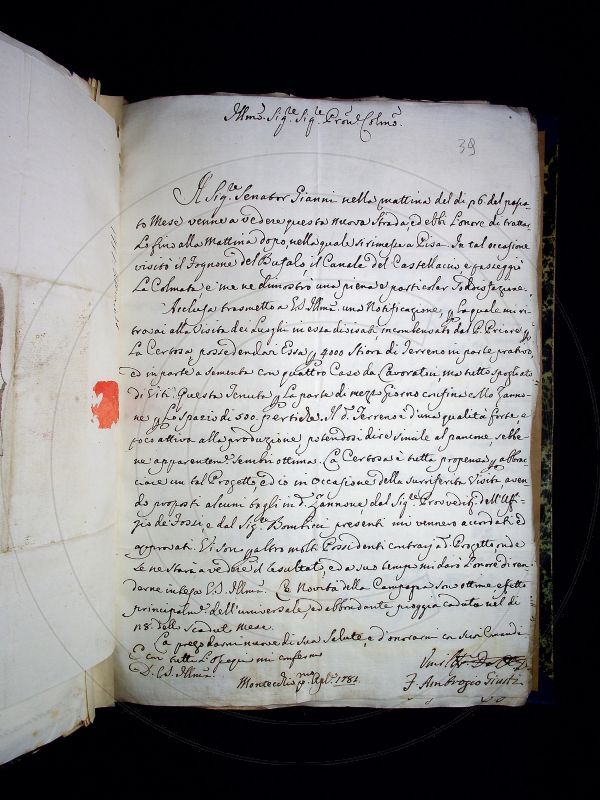 Illmo. Sigre. Sigre. Prone. Colmo.
39
Il Sigre. Senator Gianni nella mattina del dì 26. del passa-
to Mese venne a vedere questa nuova Strada, ed ebbi L'onore di tratta-
Lo fino alla Mattina dopo nella quale si rimesse a Pisa. In tal occasione
visitò il Fognone del Bufalo, il Canale del Castellaccio, e passeggiò
La Colmata e me ne dimostrò una piena, e particolar Sodisfazione.
Acclusa trasmetto a VS. Illma. una Notificazione, p la quale mi ri-
trovai alla Visita dei Luoghi in essa divisati, incombensato dal P. Priore p
La Certosa possedendavi Essa p 4000 Stiora di Terreno in parte prativo,
e in parte a sementa con quattro Case da Lavoratori ma tutto spogliato
di Viti. Questa Tenuta p La parte di mezzo Giorno confina collo Zanno-
ne p Lo spazio di 500. Pertiche. Il d. Terreno è d'una qualità forte e
poco attiva alla produzione, potendosi dire simile al pancone, sebbe-
ne apparentemte. sembri ottima. La Certosa è tutta propensa p abbrac-
ciare un tal Progetto, ed io in Occasione della Surriferita Visita aven-
do proposti alcuni tagli in d. Zannone dal Sigre. Provvedre. dell'Uffi-
zio de Fossi e dal Sigre. Bombicci presenti mi vennero accordati, e
approvati. Vi son p altro molti Possidenti contrarj a d. Progetto onde
Se ne starà a vedere il resultato, e a suo tempo mi darò L'onore di ren-
darne intesa VS. Illma. Le Novità della Campagna Son ottime, e fatte
principalmte. dell'universale, ed abbondante pioggia caduta nel dì
28. dello Scaduto Mese.
La prego darmi nuove di Sua Salute, e d'onorarmi con Suoi Comandi
E con tutto L'ossequio mi confermo
D. VS. Illma.
Montecchio pmo. Aple. 1781.
F. Ambrogio Giusti